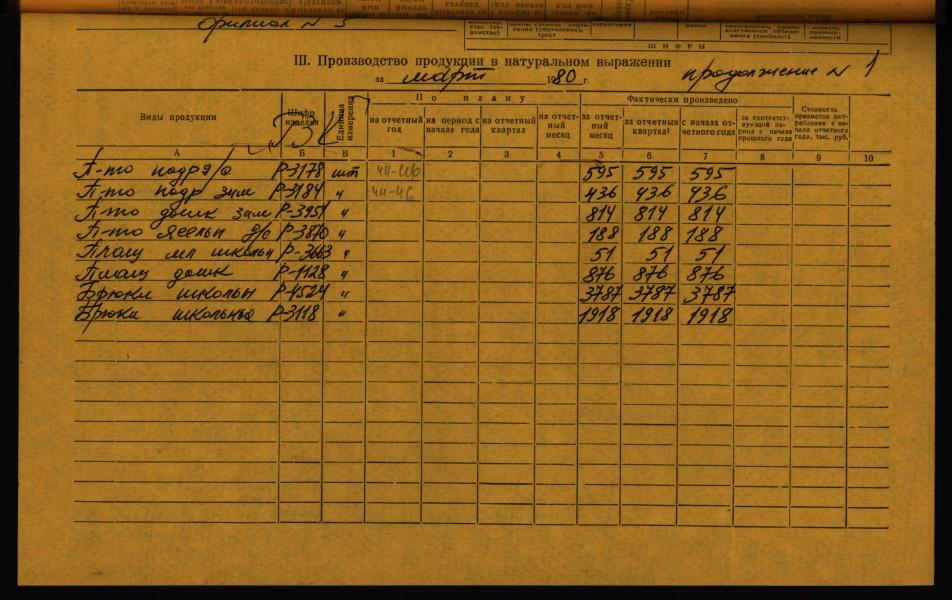 филиал N 3
министерство (ведомство)
территория
район
ШИФРЫ
III. Производство продукции в натуральном выражении
за март 1980 г. продолжение N 1
Виды продукции Шифр изделия Единица измерения По плану Фактически произведено Стоимость
на отчетный год на период с начала года на отчетный квартал на отчетный месяц за отчетный месяц за отчетный квартал с начала отчетного года за соответствующий период с начала прошлого года
А Б В 1 2 3 4 5 6 7 8 9 10
П-то подр д/с Р-3178 шт 44-46 595 595 595
П-то подр зим Р-3184 " 44-46 436 436 436
П-то дошк зим Р-3951 " 814 814 814
П-то ясельн д/с Р-3870 " 188 188 188
Плащ мл школьн Р-3663 " 51 51 51
Плащ дошк Р-1128 " 876 876 876
Брюки школьн Р-4524 " 3787 3787 3787
Брюки школьные Р-3118 " 1918 1918 1918